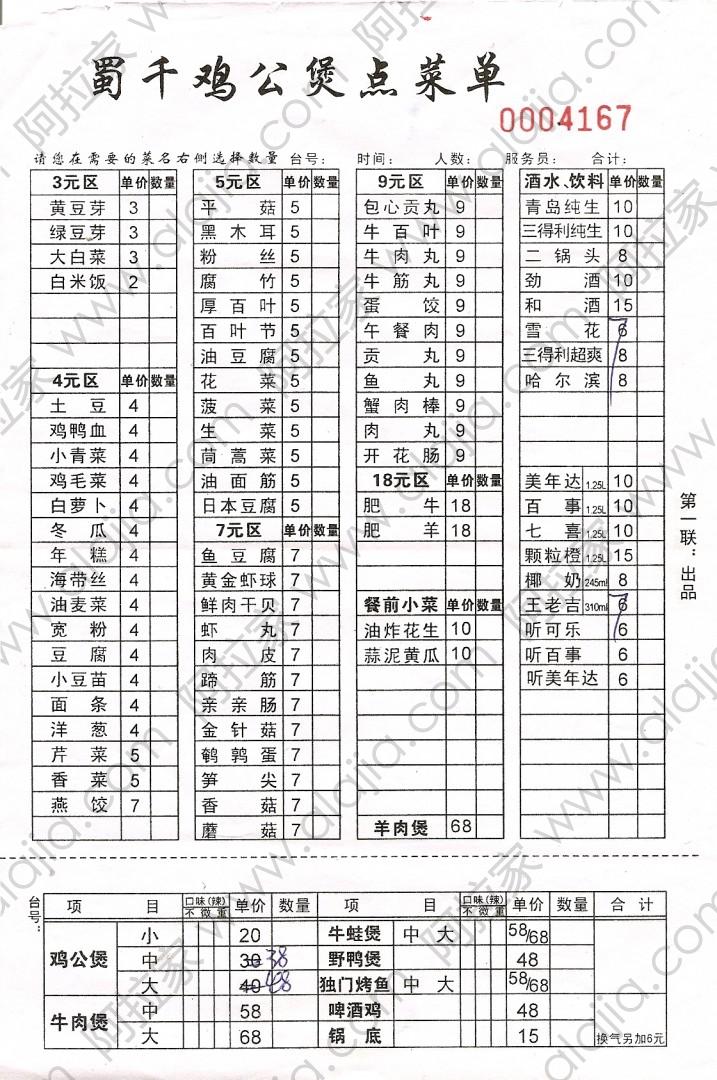 蜀千鸡公煲点菜单
0004167
请您在需要的菜名右侧选择数量 台号： 时间： 人数： 服务员： 合计：
3元区 单价 数量
黄豆芽 3
绿豆芽 3
大白菜 3
白米饭 2
4元区 单价 数量
土豆 4
鸡鸭血 4
小青菜 4
鸡毛菜 4
白萝卜 4
冬瓜 4
年糕 4
海带丝 4
油麦菜 4
宽粉 4
豆腐 4
小豆苗 4
面条 4
洋葱 4
芹菜 5
香菜 5
燕饺 7
5元区 单价 数量
平菇 5
黑木耳 5
粉丝 5
腐竹 5
厚百叶 5
百叶节 5
油豆腐 5
花菜 5
菠菜 5
生菜 5
茼蒿菜 5
油面筋 5
日本豆腐 5
7元区 单价 数量
鱼豆腐 7
黄金虾球 7
鲜肉干贝 7
虾丸 7
肉皮 7
蹄筋 7
亲亲肠 7
金针菇 7
鹌鹑蛋 7
笋尖 7
香菇 7
蘑菇 7
9元区 单价 数量
包心贡丸 9
牛百叶 9
牛肉丸 9
牛筋丸 9
蛋饺 9
午餐肉 9
贡丸 9
鱼丸 9
蟹肉棒 9
肉丸 9
开花肠 9
18元区 单价 数量
肥牛 18
肥羊 18
餐前小菜 单价 数量
油炸花生 10
蒜泥黄瓜 10
羊肉煲 68
酒水、饮料 单价 数量
青岛纯生 10
三得利纯生 10
二锅头 8
劲酒 10
和酒 15
雪花 6 7
三得利超爽 8
哈尔滨 8
美年达 1.25L 10
百事 1.25L 10
七喜 1.25L 10
颗粒橙 1.25L 15
椰奶 245ml 8
王老吉 310ml 6 7
听可乐 6
听百事 6
听美年达 6
第一联：出品
台号：
项目 口味(辣) 不微重 单价 数量 项目 口味(辣) 不微重 单价 数量 合计
鸡公煲 小 20 牛蛙煲 中 大 58/68
中 30 38 野鸭煲 48
大 40 48 独门烤鱼 中 大 58/68
牛肉煲 中 58 啤酒鸡 48
大 68 锅底 15 换气另加6元
阿拉家 www.alajia.com